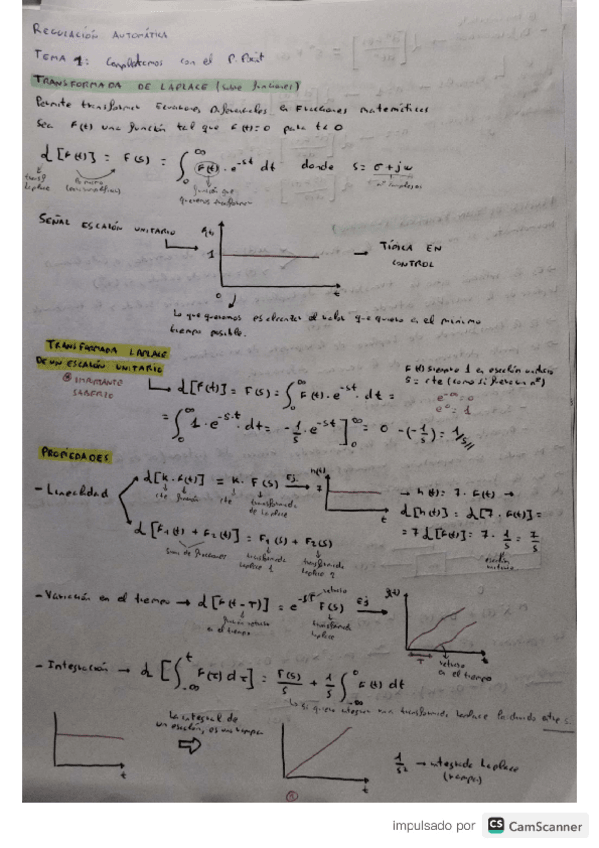 REGULACIÓN AUTOMÁTICA
TEMA 1: Complementemos con el P. Point
TRANSFORMADA DE LAPLACE (sobre funciones)
Permite transformar Ecuaciones Diferenciales en Fracciones matemáticas
Sea F(t) una función tal que F(t)=0 para t<0
L[F(t)] = F(s) = ∫₀^∞ F(t)·e^-st dt donde s = σ+jω
transf
Laplace
función que
queremos transformar
nº complejo
SEÑAL ESCALÓN UNITARIO
1
→ TÍPICA EN
CONTROL
0
t
Lo que queremos es alcanzar el valor que quiero en el mínimo
tiempo posible.
TRANSFORMADA LAPLACE
DE UN ESCALÓN UNITARIO
IMPORTANTE
SABERLO
L[F(t)] = F(s) = ∫₀^∞ F(t)·e^-st·dt =
F(t) siempre 1 en escalón unitario
s = cte (como si fuera un nº)
e^-∞ = 0
e^0 = 1
= ∫₀^∞ 1·e^-s·t·dt = -1/s·e^-st]₀^∞ = 0 -(-1/s) = 1/s//
PROPIEDADES
- Linealidad
L[K·F(t)] = K·F(s) Ej
cte función cte transformada
de Laplace
h(t)
7
t
→ h(t) = 7·F(t) →
L[h(t)] = L[7·F(t)] =
= 7L[F(t)] = 7·1/s = 7/s
escalón
unitario
L[F₁(t) + F₂(t)] = F₁(s) + F₂(s)
Suma de funciones transformada
Laplace 1
transformada
Laplace 2
- Variación en el tiempo → L[F(t-T)] = e^-sT F(s) Ej
retraso
función retraso
en el tiempo
transformada
Laplace
T
retraso
en el tiempo
- Integración → L[∫₋∞^t F(τ)dτ] = F(s)/s + 1/s ∫₋∞^0 F(t) dt
Lo si quiero integrar una transformada Laplace la divido entre s
La integral de
un escalón, es una rampa
t
t
1/s² → integrada Laplace
(rampa)
impulsado por CS CamScanner